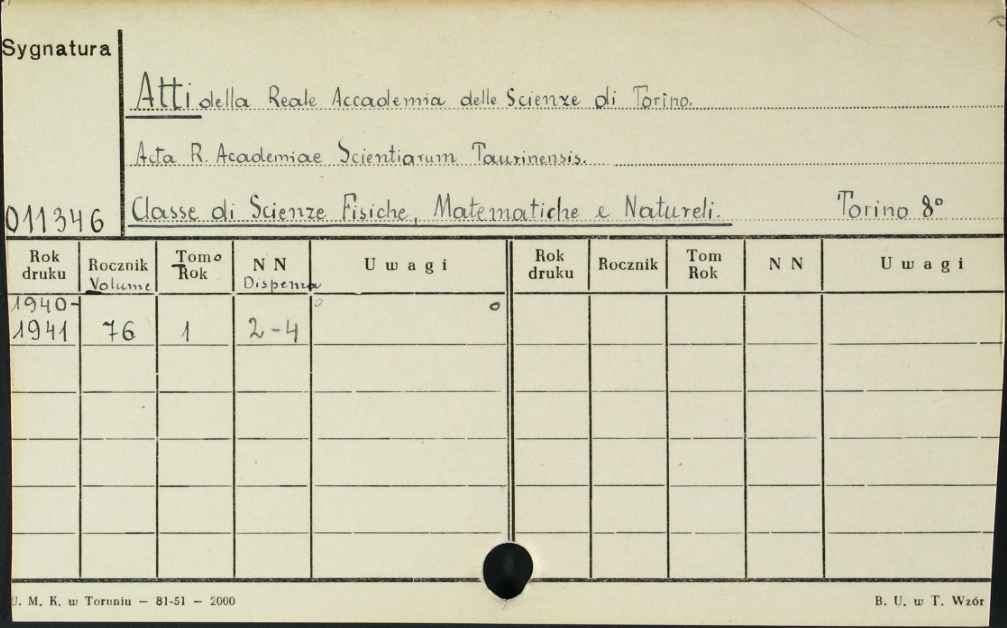 Sygnatura
Atti della Reale Accademia delle Scienze di Torino.
Acta R. Academiae Scientiarum Taurinensis.
011346 Classe di Scienze Fisiche, Matematiche e Natureli. Torino 8°
Rok druku Rocznik Volume Tomo Rok N N Dispensa Uwagi Rok druku Rocznik Tom Rok N N Uwagi
1940-
1941 76 1 2-4
U. M. K. w Toruniu — 81-51 — 2000 B. U. w T. Wzór